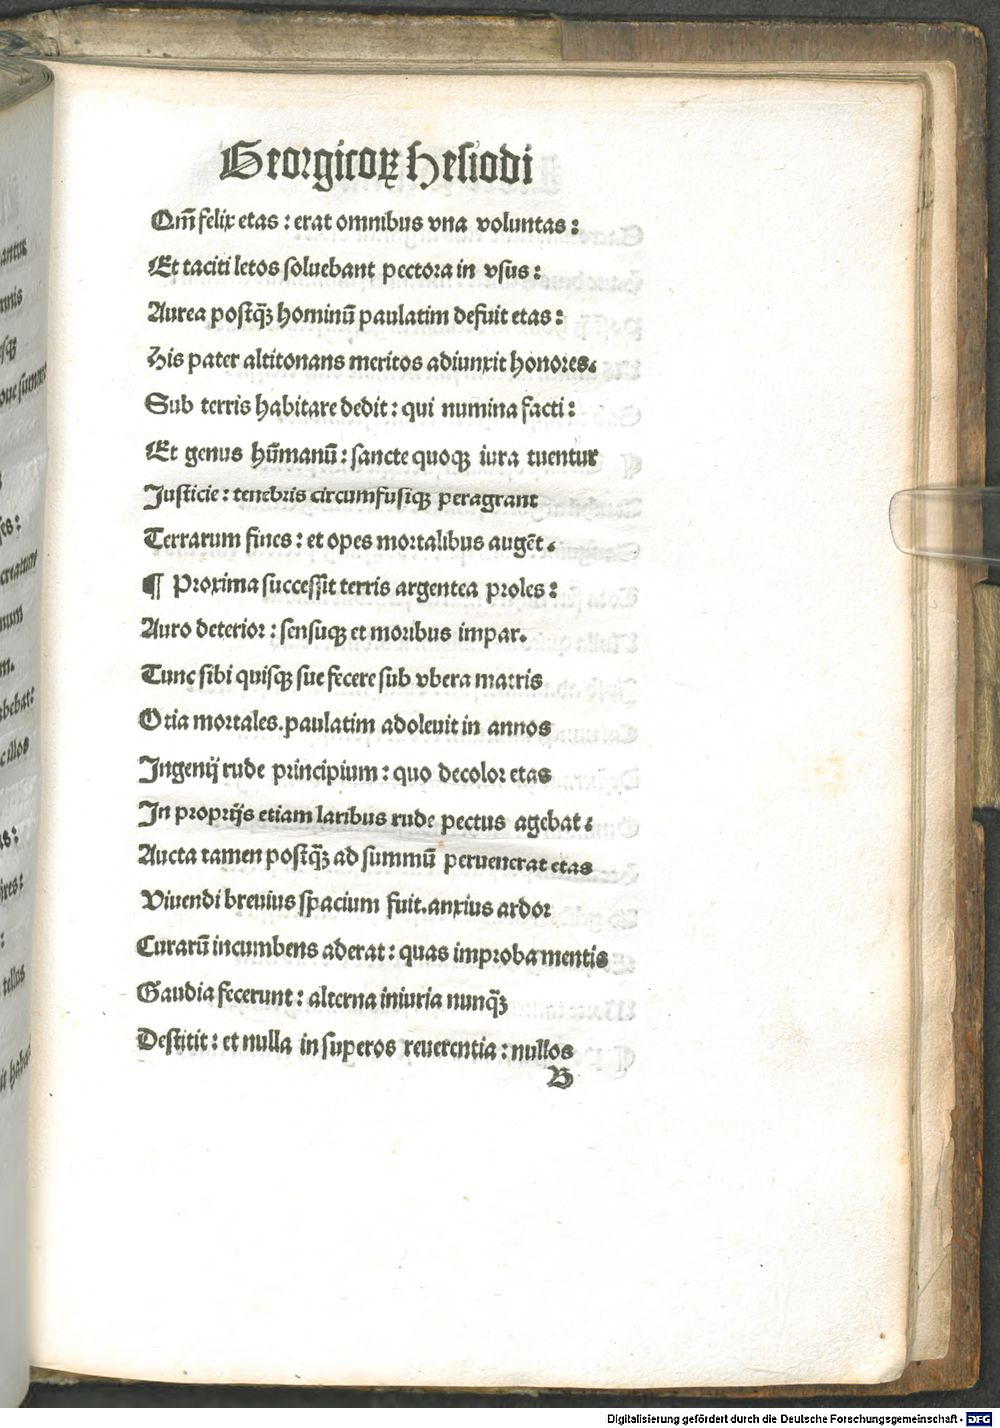 Georgicoꝝ Hesiodi
Om̄ felix etas : erat omnibus vna voluntas :
Et taciti letos soluebant pectora in vsus :
Aurea postq̄ꝫ hominū paulatim defuit etas :
His pater altitonans meritos adiunxit honores.
Sub terris habitare dedit : qui numina facti :
Et genus hūmanū : sancte quoqꝫ iura tuentur
Justicie : tenebris circumfusiqꝫ peragrant
Terrarum fines : et opes mortalibus augēt.
¶ Proxima successit terris argentea proles :
Auro deterior : sensuqꝫ et moribus impar.
Tunc sibi quisqꝫ sue fecere sub vbera matris
Otia mortales. paulatim adoleuit in annos
Ingenij rude principium : quo decolor etas
In proprijs etiam laribus rude pectus agebat :
Aucta tamen postq̄ꝫ ad summū peruenerat etas
Viuendi breuius spacium fuit. anxius ardor
Curarū incumbens aderat : quas improba mentis
Gaudia fecerunt : alterna iniuria nunq̄ꝫ
Destitit : et nulla in superos reuerentia : nullos
B
antus
omnis
oue summ
ses :
creatum
num
m.
ebebat :
c illos
as :
tellus
Digitalisierung gefördert durch die Deutsche Forschungsgemeinschaft - DFG